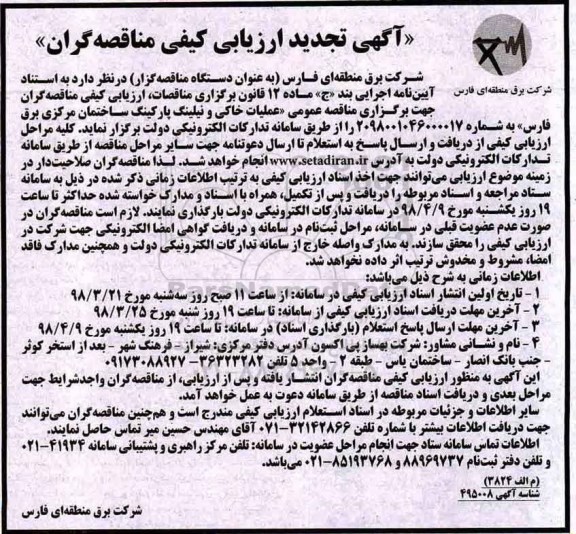 «آگهی تجدید ارزیابی کیفی مناقصه‌گران»
شرکت برق منطقه‌ای فارس
شرکت برق منطقه‌ای فارس (به عنوان دستگاه مناقصه‌گزار) درنظر دارد به استناد
آیین‌نامه اجرایی بند «ج» ماده ۱۲ قانون برگزاری مناقصات، ارزیابی کیفی مناقصه‌گران
جهت برگزاری مناقصه عمومی «عملیات خاکی و نیلینگ پارکینگ ساختمان مرکزی برق
فارس» به شماره ۲۰۹۸۰۰۱۰۴۶۰۰۰۰۱۷ را از طریق سامانه تدارکات الکترونیکی دولت برگزار نماید. کلیه مراحل
ارزیابی کیفی از دریافت و ارسال پاسخ به استعلام تا ارسال دعوتنامه جهت سایر مراحل مناقصه از طریق سامانه
تدارکات الکترونیکی دولت به آدرس www.setadiran.ir انجام خواهد شد. لذا مناقصه‌گران صلاحیت‌دار در
زمینه موضوع ارزیابی می‌توانند جهت اخذ اسناد ارزیابی کیفی به ترتیب اطلاعات زمانی ذکر شده در ذیل به سامانه
ستاد مراجعه و اسناد مربوطه را دریافت و پس از تکمیل، همراه با اسناد و مدارک خواسته شده حداکثر تا ساعت
۱۹ روز یکشنبه مورخ ۹۸/۴/۹ در سامانه تدارکات الکترونیکی دولت بارگذاری نمایند. لازم است مناقصه‌گران در
صورت عدم عضویت قبلی در سامانه، مراحل ثبت‌نام در سامانه و دریافت گواهی امضا الکترونیکی جهت شرکت در
ارزیابی کیفی را محقق سازند. به مدارک واصله خارج از سامانه تدارکات الکترونیکی دولت و همچنین مدارک فاقد
امضا، مشروط و مخدوش ترتیب اثر داده نخواهد شد.
اطلاعات زمانی به شرح ذیل می‌باشد:
۱- تاریخ اولین انتشار اسناد ارزیابی کیفی در سامانه: از ساعت ۱۱ صبح روز سه‌شنبه مورخ ۹۸/۳/۲۱
۲- آخرین مهلت دریافت اسناد ارزیابی کیفی از سامانه: تا ساعت ۱۹ روز شنبه مورخ ۹۸/۳/۲۵
۳- آخرین مهلت ارسال پاسخ استعلام (بارگذاری اسناد) در سامانه: تا ساعت ۱۹ روز یکشنبه مورخ ۹۸/۴/۹
۴- نام و نشانی مشاور: شرکت بهساز پی اکسون آدرس دفتر مرکزی: شیراز- فرهنگ شهر - بعد از استخر کوثر
- جنب بانک انصار - ساختمان یاس - طبقه ۲ - واحد ۵ تلفن ۳۶۳۲۳۲۸۲- ۰۹۱۷۳۰۸۸۹۲۷
این آگهی به منظور ارزیابی کیفی مناقصه‌گران انتشار یافته و پس از ارزیابی، از مناقصه‌گران واجدشرایط جهت
مراحل بعدی و دریافت اسناد مناقصه از طریق سامانه دعوت به عمل خواهد آمد.
سایر اطلاعات و جزئیات مربوطه در اسناد استعلام ارزیابی کیفی مندرج است و هم‌چنین مناقصه‌گران می‌توانند
جهت دریافت اطلاعات بیشتر با شماره تلفن ۳۲۱۴۲۸۶۶-۰۷۱ آقای مهندس حسین میر تماس حاصل نمایند.
اطلاعات تماس سامانه ستاد جهت انجام مراحل عضویت در سامانه: تلفن مرکز راهبری و پشتیبانی سامانه ۴۱۹۳۴-۰۲۱
و تلفن دفتر ثبت‌نام ۸۸۹۶۹۷۳۷ و ۸۵۱۹۳۷۶۸-۰۲۱ می‌باشد.
(م الف ۳۸۲۴)
شناسه آگهی ۴۹۵۰۰۸
شرکت برق منطقه‌ای فارس